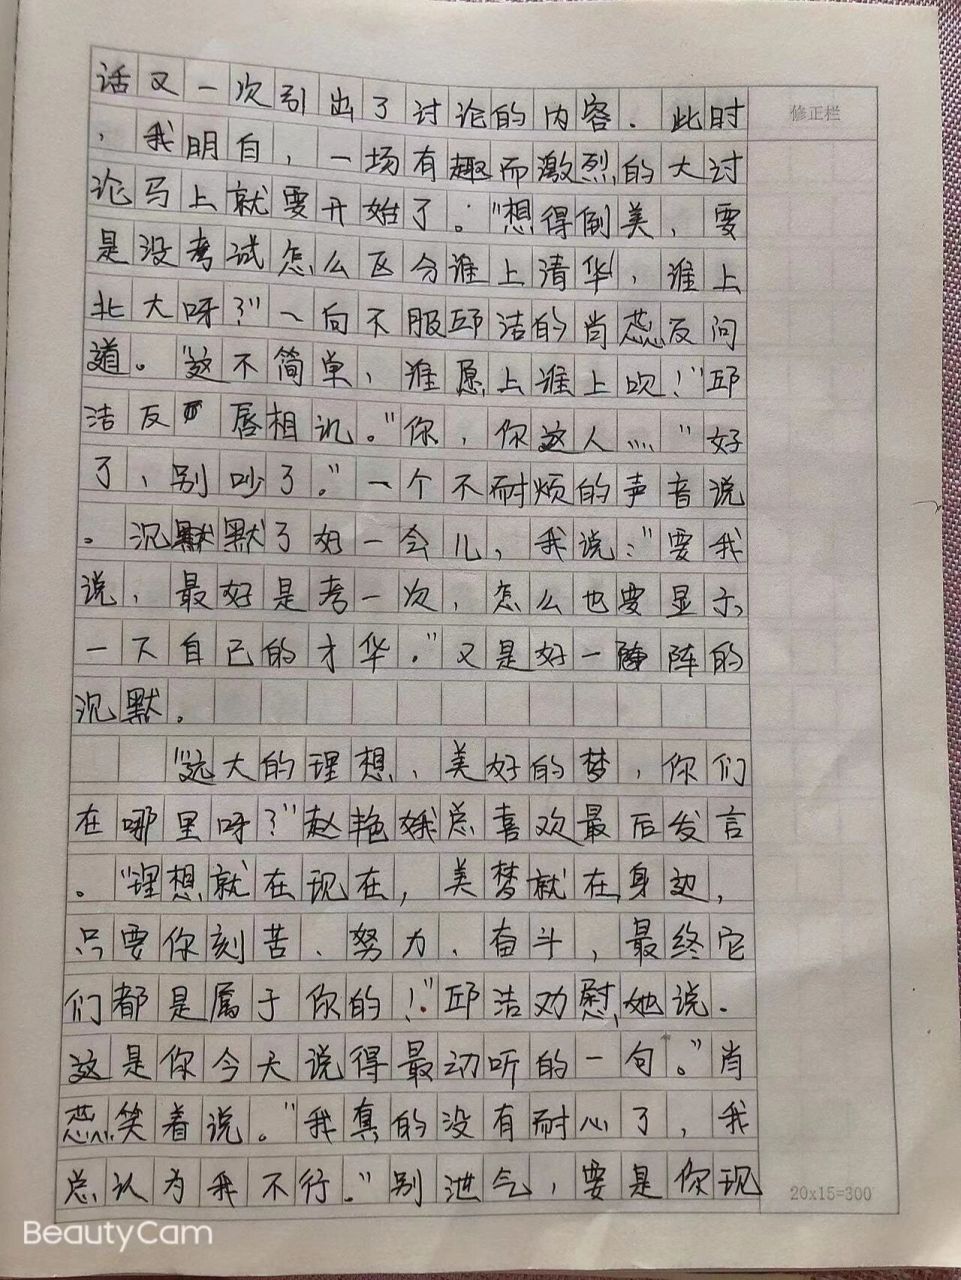 话又一次引出了讨论的内容．此时
，我明白，一场有趣而激烈的大讨
论马上就要开始了。“想得倒美，要
是没考试怎么区分谁上清华，谁上
北大呀？”一向不服邱洁的肖蕊反问
道。“这不简单，谁愿上谁上呗！”邱
洁反唇相讥。“你，你这人……”“好
了，别吵了。”一个不耐烦的声音说
。沉默默了好一会儿，我说：“要我
说，最好是考一次，怎么也要显示
一下自己的才华．”又是好一阵的
沉默．
“远大的理想、美好的梦，你们
在哪里呀？”赵艳娥总喜欢最后发言
。“理想就在现在，美梦就在身边，
只要你刻苦、努力、奋斗，最终它
们都是属于你的！”邱洁劝慰她说．
这是你今天说得最动听的一句。”肖
蕊笑着说。“我真的没有耐心了，我
总认为我不行．”别泄气，要是你现
修正栏
20x15=300
BeautyCam